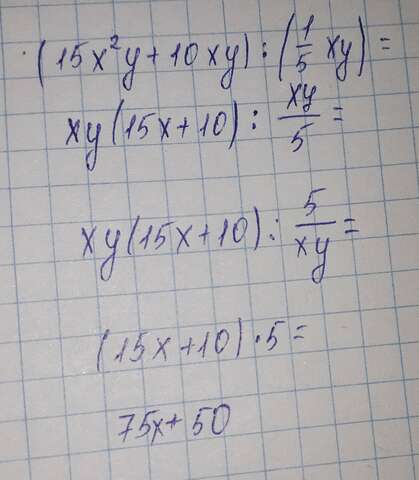 (15x²y+10xy):(1/5 xy)=
xy(15x+10): xy/5=
xy(15x+10): 5/xy=
(15x+10)·5=
75x+50